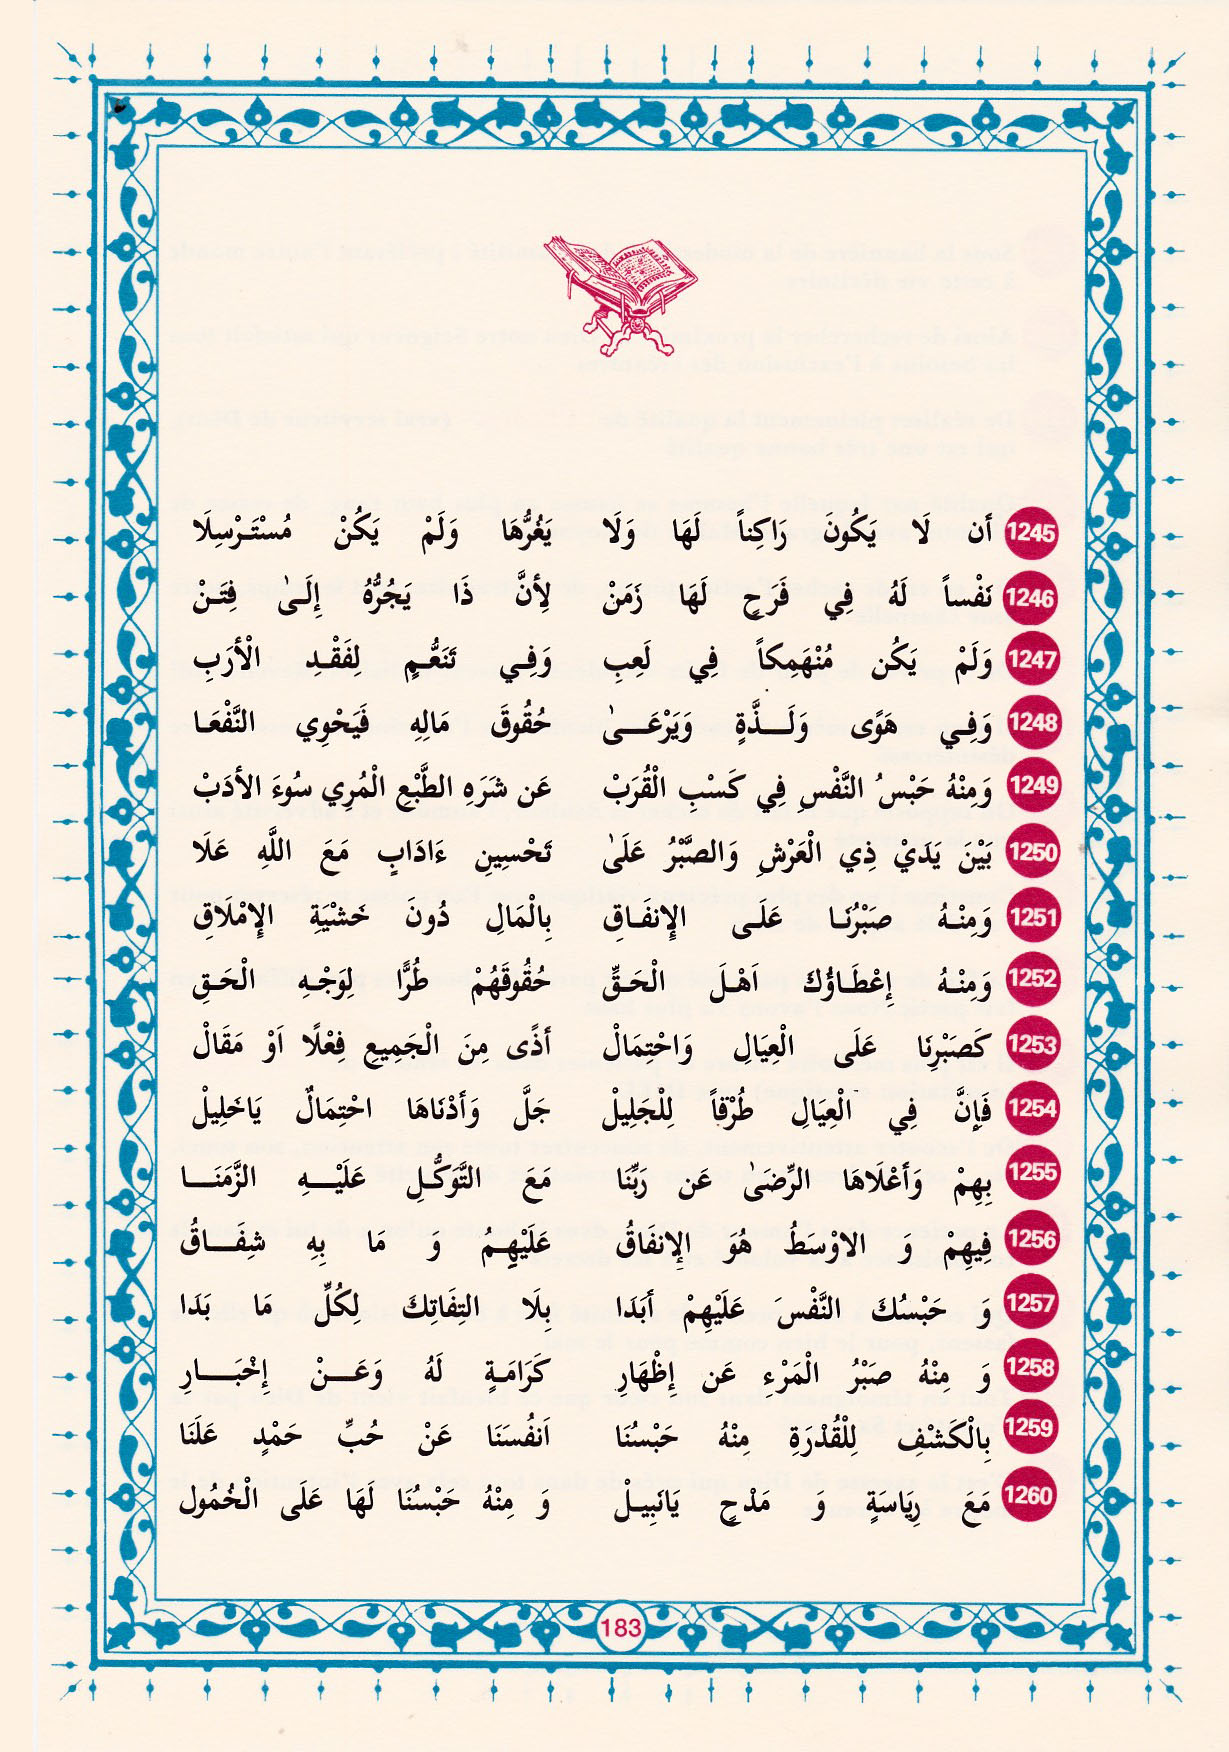 1245 أَن لَا يَكُونَ رَاكِناً لَهَا وَلَا يَغُرُّهَا وَلَمْ يَكُنْ مُسْتَرْسِلَا
1246 نَفْساً لَهُ فِي فَرَحٍ لَهَا زَمَنْ لِأنَّ ذَا يَجُرُّهُ إِلَىٰ فِتَنْ
1247 وَلَمْ يَكُن مُنْهَمِكاً فِي لَعِبِ وَفِي تَنَعُّمٍ لِفَقْدِ الْأرَبِ
1248 وَفِي هَوًى وَلَذَّةٍ وَيَرْعَىٰ حُقُوقَ مَالِهِ فَيَحْوِي النَّفْعَا
1249 وَمِنْهُ حَبْسُ النَّفْسِ فِي كَسْبِ الْقُرَبْ عَن شَرَهِ الطَّبْعِ الْمُرِي سُوءَ الأدَبْ
1250 بَيْنَ يَدَيْ ذِي الْعَرْشِ وَالصَّبْرُ عَلَىٰ تَحْسِينِ ءَادَابٍ مَعَ اللَّهِ عَلَا
1251 وَمِنْهُ صَبْرُنَا عَلَى الإِنفَاقِ بِالْمَالِ دُونَ خَشْيَةِ الإِمْلَاقِ
1252 وَمِنْهُ إِعْطَاؤُكَ اَهْلَ الْحَقِّ حُقُوقَهُمْ طُرًّا لِوَجْهِ الْحَقِ
1253 كَصَبْرِنَا عَلَى الْعِيَالِ وَاحْتِمَالْ أذًى مِنَ الْجَمِيعِ فِعْلًا اَوْ مَقَالْ
1254 فَإِنَّ فِي الْعِيَالِ طُرْقاً لِلْجَلِيلْ جَلَّ وَأَدْنَاهَا احْتِمَالٌ يَاخَلِيلْ
1255 بِهِمْ وَأَعْلَاهَا الرِّضَىٰ عَن رَبِّنَا مَعَ التَّوَكُّلِ عَلَيْهِ الزَّمَنَا
1256 فِيهِمْ وَ الاوْسَطُ هُوَ الإِنفَاقُ عَلَيْهِمُ وَ مَا بِهِ شِفَاقُ
1257 وَ حَبْسُكَ النَّفْسَ عَلَيْهِمْ أَبَدَا بِلَا التِفَاتِكَ لِكُلِّ مَا بَدَا
1258 وَ مِنْهُ صَبْرُ الْمَرْءِ عَن إِظْهَارِ كَرَامَةٍ لَهُ وَعَنْ إِخْبَارِ
1259 بِالْكَشْفِ لِلْقُدْرَةِ مِنْهُ حَبْسُنَا اَنفُسَنَا عَنْ حُبِّ حَمْدٍ عَلَنَا
1260 مَعَ رِيَاسَةٍ وَ مَدْحٍ يَانَبِيلْ وَ مِنْهُ حَبْسُنَا لَهَا عَلَى الْخُمُول
183